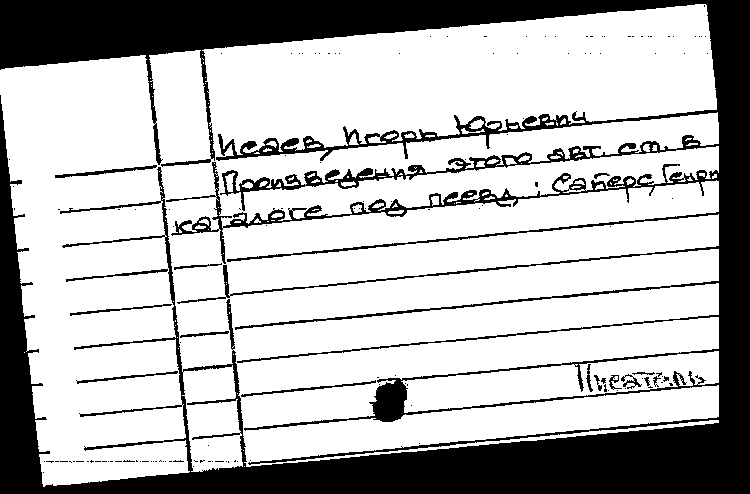 Исаев, Игорь Юрьевич
Произведения этого авт. см. в
каталоге под псевд.: Саперс, Генри
Писатель